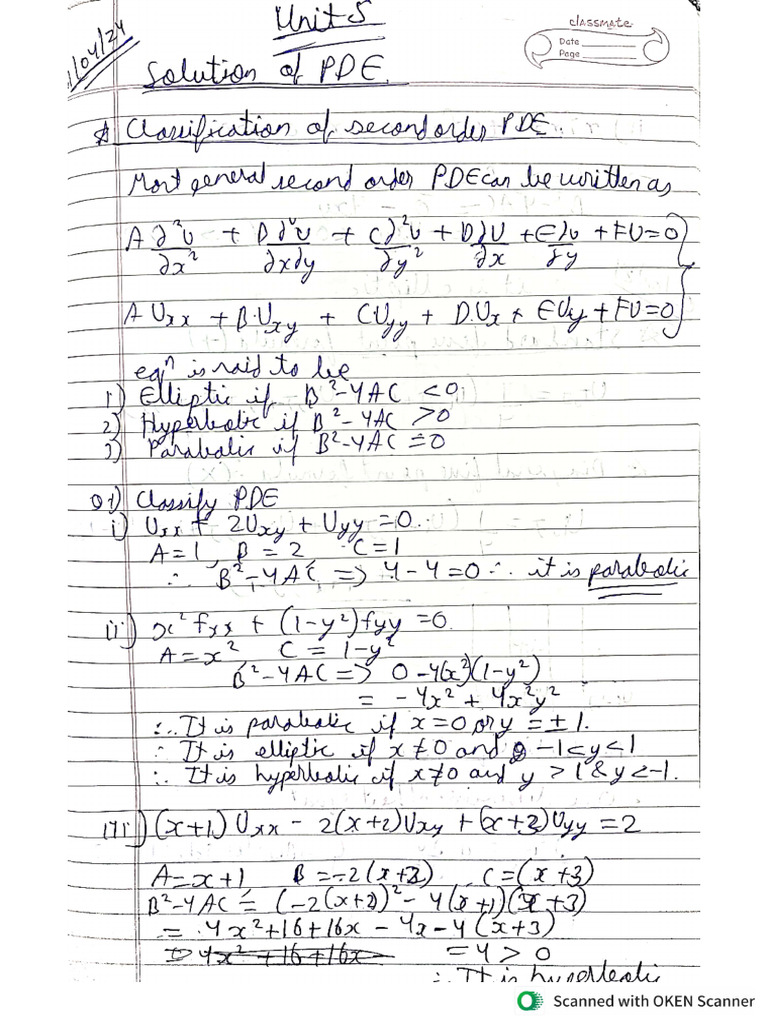 Unit 5
classmate
Date
Page
1/04/24
Solution of PDE.
Classification of second order PDE.
Most general second order PDE can be written as
A ∂²U/∂x² + B ∂²U/∂x∂y + C ∂²U/∂y² + D ∂U/∂x + E ∂U/∂y + FU = 0
A Uxx + B·Uxy + CUyy + D.Ux + EUy + FU = 0
eqⁿ is said to be
1) Elliptic if B²-4AC < 0
2) Hyperbolic if B²-4AC > 0
3) Parabolic if B²-4AC = 0
Q1) Classify PDE
i) Uxx + 2Uxy + Uyy = 0.
A = 1, B = 2, C = 1
∴ B²-4AC => 4-4 = 0 ∴ it is parabolic
ii) x² fxx + (1-y²) fyy = 0.
A = x² C = 1-y²
B²-4AC => 0-4(x²)(1-y²)
= -4x² + 4x²y²
∴ It is parabolic if x = 0 or y = ±1.
∴ It is elliptic if x ≠ 0 and -1<y<1
∴ It is hyperbolic if x≠0 and y > 1 & y <-1.
iii) (x+1) Uxx - 2(x+2)Uxy + (x+3)Uyy = 2
A = x+1 B = -2(x+2) C = (x+3)
B²-4AC = (-2(x+2))² - 4(x+1)(x+3)
= 4x²+16+16x - 4x-4(x+3)
=> 4x²+16+16x = 4 > 0
∴ It is hyperbolic
Scanned with OKEN Scanner